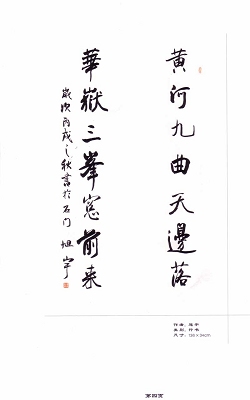 黄河九曲天邊落
華嶽三峯窓前来
歲次丙戌之秋書於石门 旭宇
作者：旭宇
类别：行书
尺寸：136×34cm
第四页